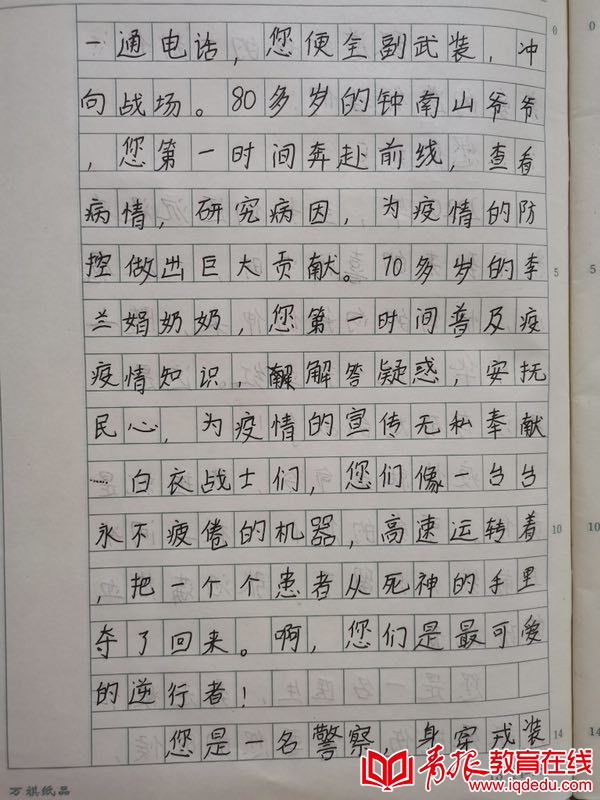 一通电话，您便全副武装，冲
向战场。80多岁的钟南山爷爷
，您第一时间奔赴前线，查看
病情，研究病因，为疫情的防
控做出巨大贡献。70多岁的李
兰娟奶奶，您第一时间普及疫
疫情知识，解解答疑惑，安抚
民心，为疫情的宣传无私奉献
……白衣战士们，您们像一台台
永不疲倦的机器，高速运转着
，把一个个患者从死神的手里
夺了回来。啊，您们是最可爱
的逆行者！
您是一名警察，身穿戎装
0
5
10
14
0
5
10
14
万祺纸品
青报教育在线
www.iqdedu.com